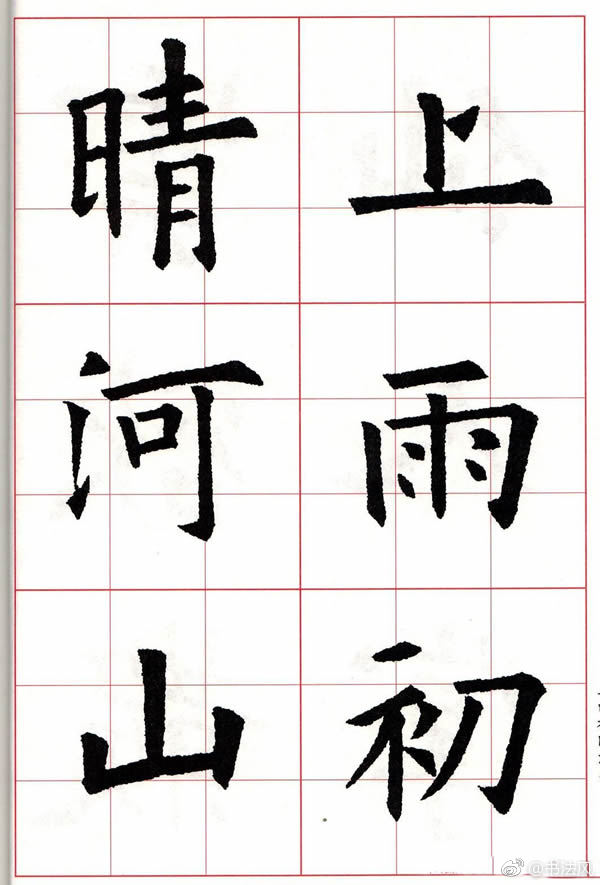 上雨初
晴河山
@书法风